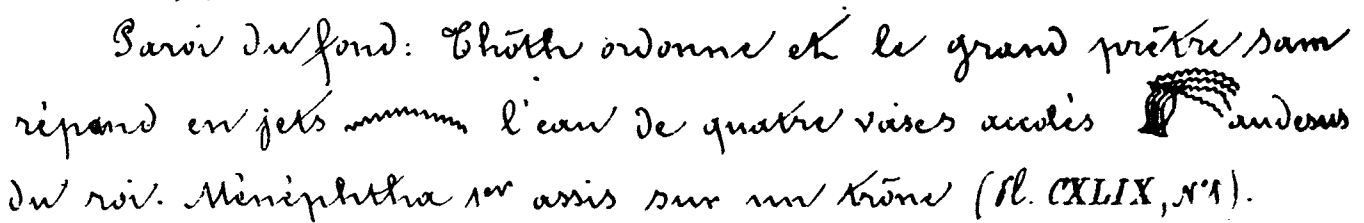 Paroi du fond: Thôth ordonne et le grand prêtre sam
répand en jets l'eau de quatre vases accolés audesus
du roi. Ménéphtha 1er assis sur un trône (Pl. CXLIX, N°1).